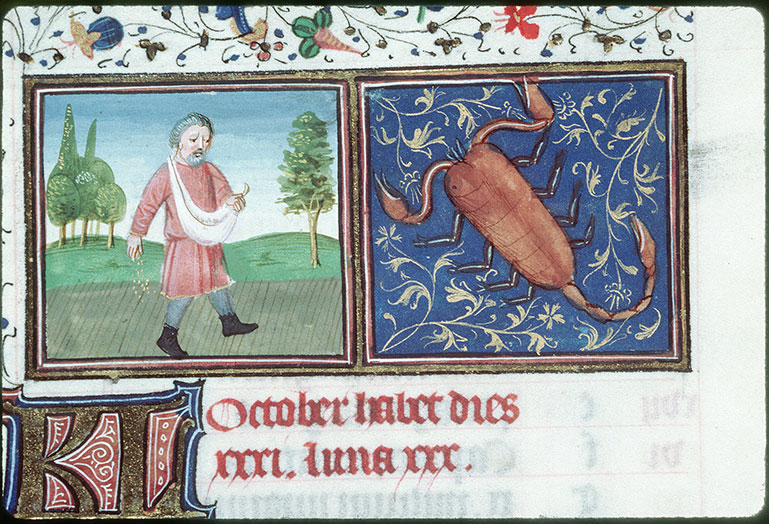 Kl
October habet dies
xxxi. luna xxx.